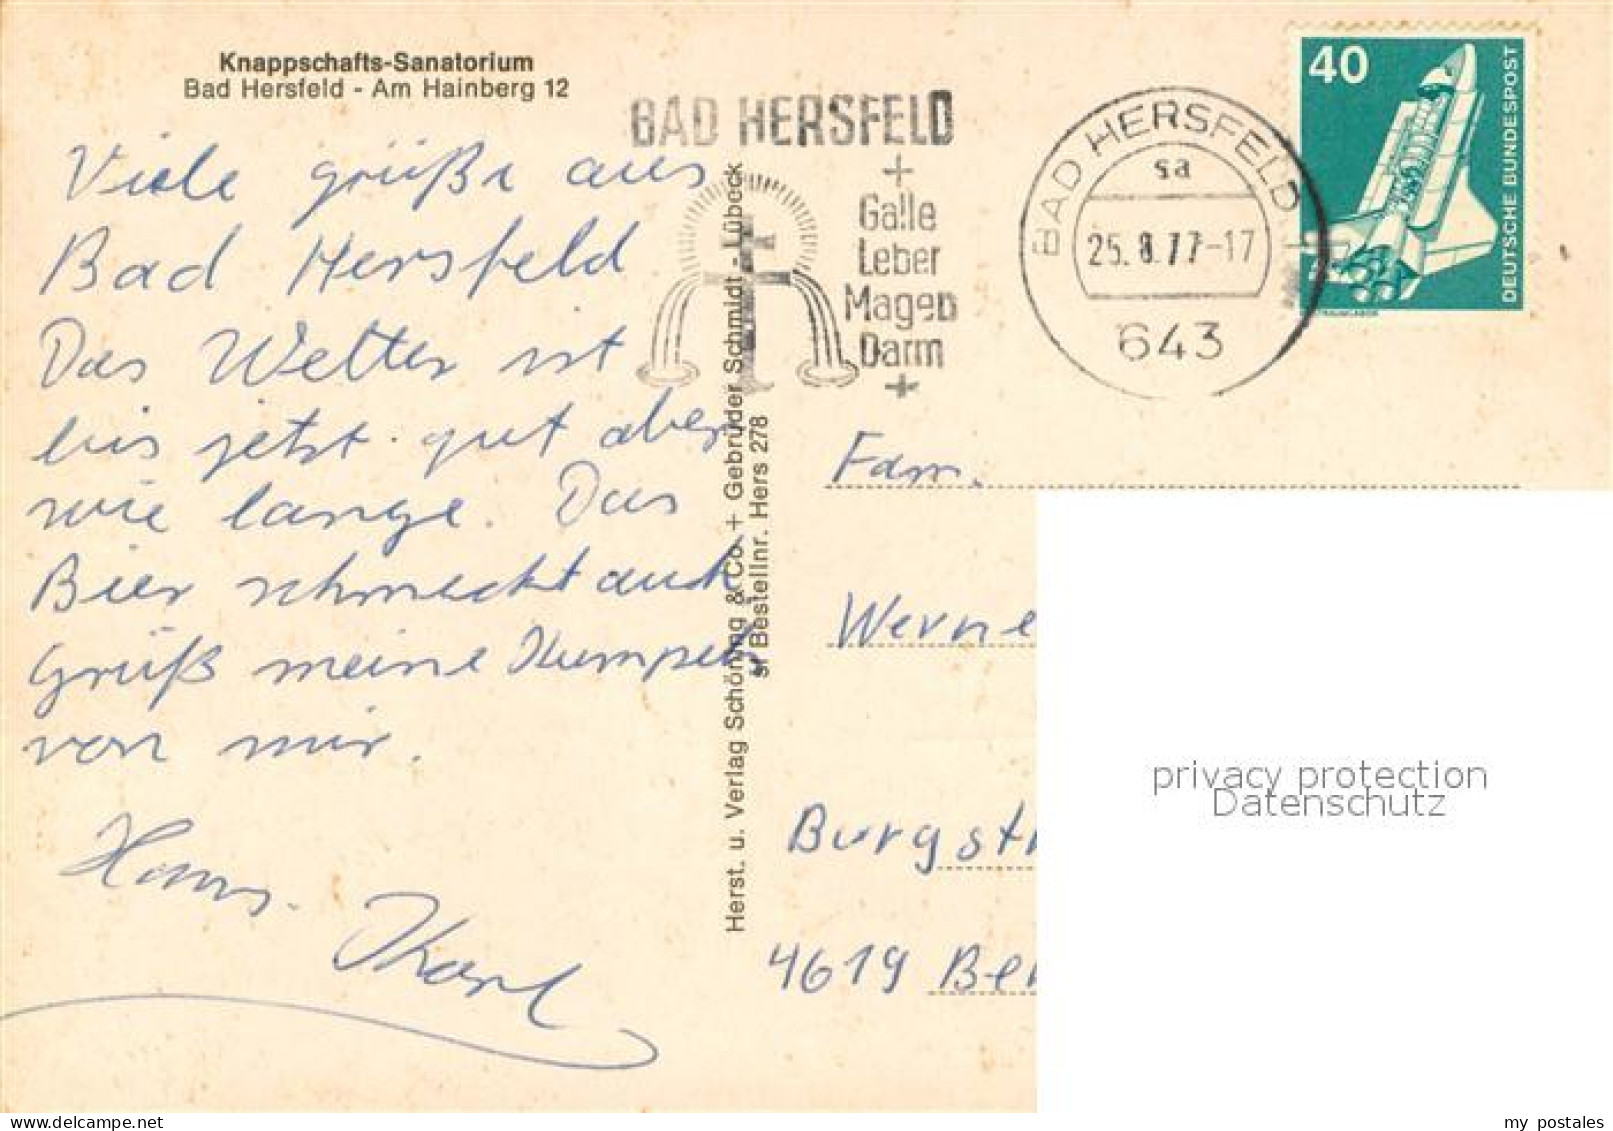 Knappschafts-Sanatorium
Bad Hersfeld - Am Hainberg 12
Viele grüße aus
Bad Hersfeld
Das Wetter ist
bis jetzt gut aber
wie lange. Das
Bier schmeckt auch
Grüß meine Kumpels
von mir.
Hans. Karl
Herst. u. Verlag Schöning & Co + Gebrüder Schmidt - Lübeck
Bestellnr. Hers 278
BAD HERSFELD
+
Galle
Leber
Magen
Darm
+
BAD HERSFELD 1
sa
25.8.77-17
643
40
DEUTSCHE BUNDESPOST
Fam.
Werne
Burgst
4619 Be
privacy protection
Datenschutz
www.delcampe.net
my_postales